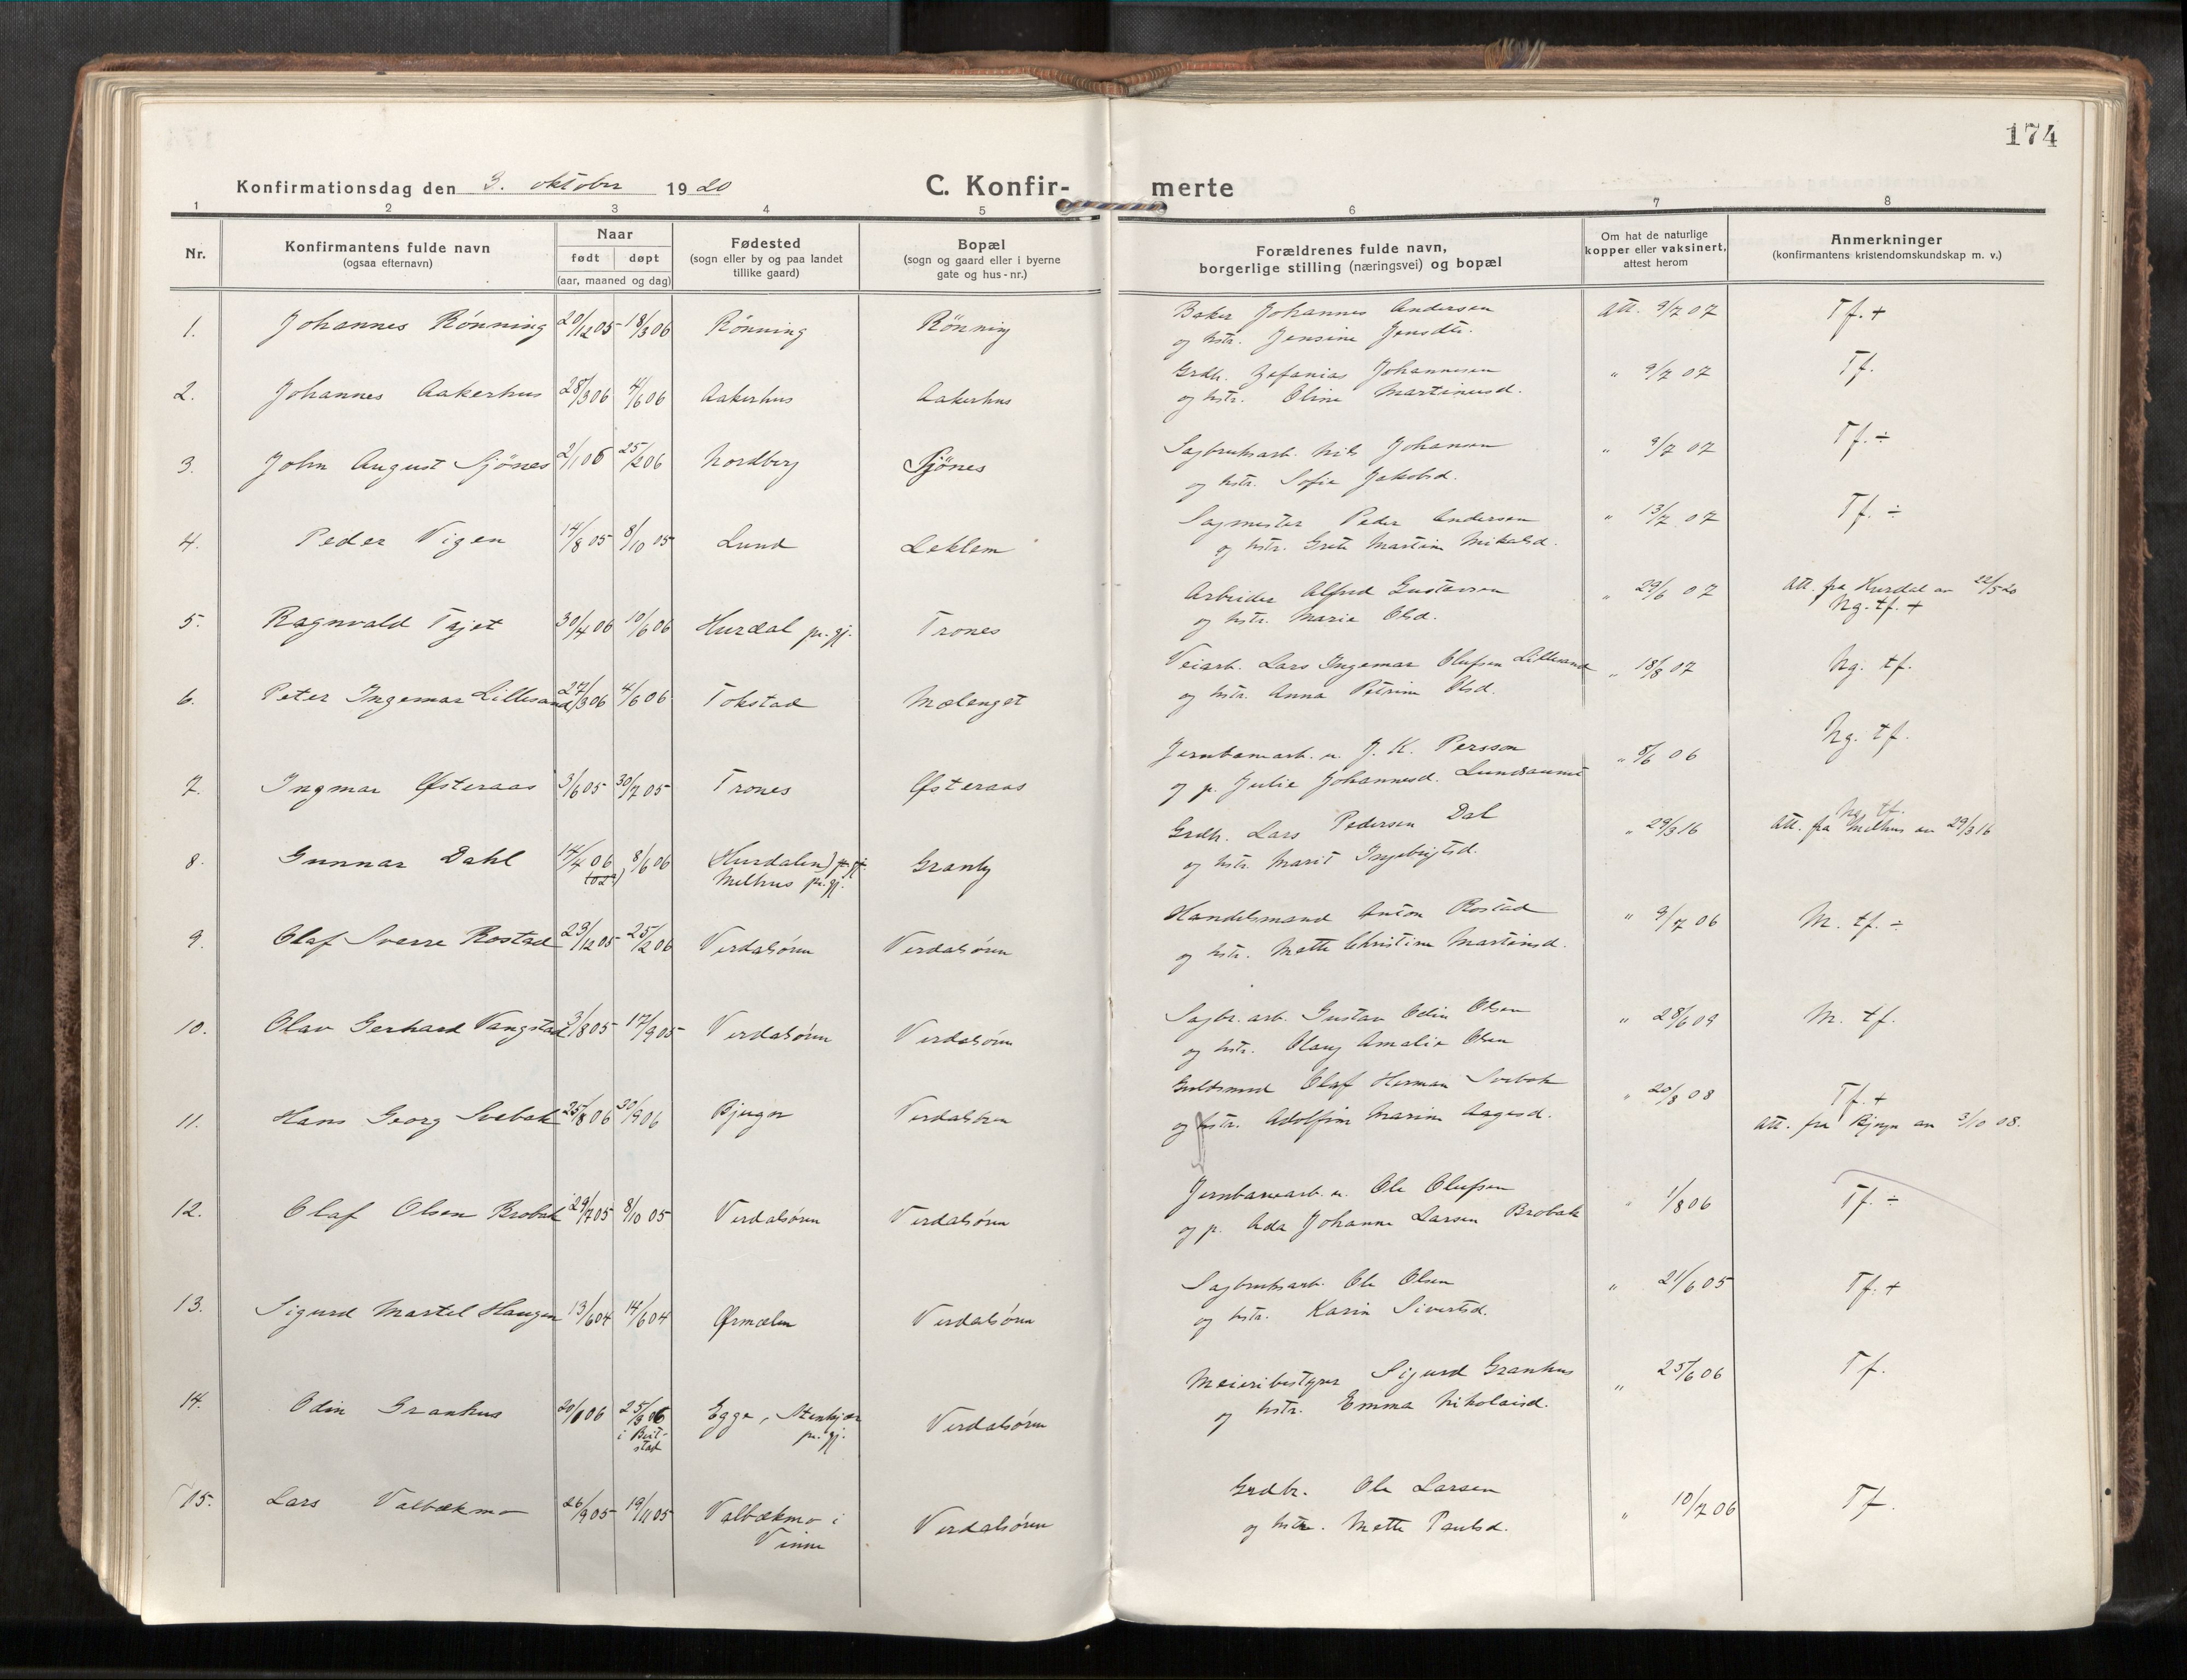 174
Konfirmationsdag den 3. oktober 1920 C. Konfirmerte
1 2 3 4 5 6 7 8
Nr.
Konfirmantens fulde navn
(ogsaa efternavn)
Naar
født døpt
(aar, maaned og dag)
Fødested
(sogn eller by og paa landet
tillike gaard)
Bopæl
(sogn og gaard eller i byerne
gate og hus-nr.)
Forældrenes fulde navn,
borgerlige stilling (næringsvei) og bopæl
Om hat de naturlige
kopper eller vaksinert,
attest herom
Anmerkninger
(konfirmantens kristendomskundskap m. v.)
1. Johannes Rönning 20/12 05 18/3 06 Rönning Rönning Baker Johannes Andersen Att. 9/7 07 Tf. +
og hstr. Jensine Jensdtr.
2. Johannes Aakerhus 28/3 06 4/6 06 Aakerhus Aakerhus Grdbr. Zefanias Johannesen " 9/7 07 Tf.
og hstr. Oline Martinusd.
3. John August Sjönes 2/1 06 25/2 06 Nordberg Sjönes Sagbruksarb. Nils Johansen " 9/7 07 Tf. ÷
og hstr. Sofie Jakobsd.
4. Peder Vigen 14/8 05 8/10 05 Lund Leklem Sagmester Peder Andersen " 13/7 07 Tf. ÷
og hstr. Grete Martine Mikalsd.
5. Ragnvald Tajet 30/4 06 10/6 06 Hurdal pr. gj. Trones Arbeider Alfred Gustavsen " 29/6 07 Att. fra Hurdal av 22/5 20
og hstr. Marie Olsd. Ng. tf. +
6. Peter Ingemar Lillesand 27/3 06 4/6 06 Tokstad Mælenget Veiarb. Lars Ingemar Olufsen Lillesand " 18/8 07 Ng. tf.
og hstr. Anna Petrine Olsd.
7. Ingmar Østeraas 3/6 05 30/7 05 Trones Østeraas Jernbanearb. u. J. K. Persson " 8/6 06 Ng. tf.
og p. Julie Johannesd. Lundsaunet
8. Gunnar Dahl 14/4 06 8/6 06 (Hurdalen) pr. gj. Granby Grdbr. Lars Pedersen Dal " 29/3 16 Ng. tf.
Melhus pr. gj. og hstr. Marit Ingebrigtsd. Att. fra Melhus av 29/3 16
9. Olaf Sverre Rostad 29/12 05 25/2 06 Verdalsören Verdalsören Handelsmand Anton Rostad " 9/7 06 M. tf. ÷
og hstr. Mette Christine Martinsd.
10. Olav Gerhard Vangstad 3/8 05 17/9 05 Verdalsören Verdalsören Sagbr. arb. Gustav Odin Olsen " 28/6 09 M. tf.
og hstr. Olaug Amalie Olsen
11. Hans Georg Svebak 25/8 06 30/9 06 Bjugn Verdalsören Guldsmed Olaf Herman Svebak " 20/8 08 Tf. +
og hstr. Adolfine Marine Aagesd. Att. fra Bjugn av 3/10 08.
12. Olaf Olsen Brobak 29/7 05 8/10 05 Verdalsören Verdalsören Jernbanearb. u. Ole Olufsen " 1/8 06 Tf. ÷
og p. Ada Johanne Larsen Brobak
13. Sigurd Martel Haugen 13/6 04 14/6 04 Ørmelen Verdalsören Sagbruksarb. Ole Olsen " 21/6 05 Tf. +
og hstr. Karin Sivertsd.
14. Odin Granhus 20/1 06 25/3 06 Egge, Stenkjær Verdalsören Meieribestyrer Sigurd Granhus " 25/6 06 Tf.
i Beit-
stad pr. gj. og hstr. Emma Nikolaisd.
15. Lars Valbækmo 26/9 05 19/11 05 Valbækmo i Verdalsören Grdbr. Ole Larsen " 10/7 06 Tf.
Vinne og hstr. Mette Paulsd.